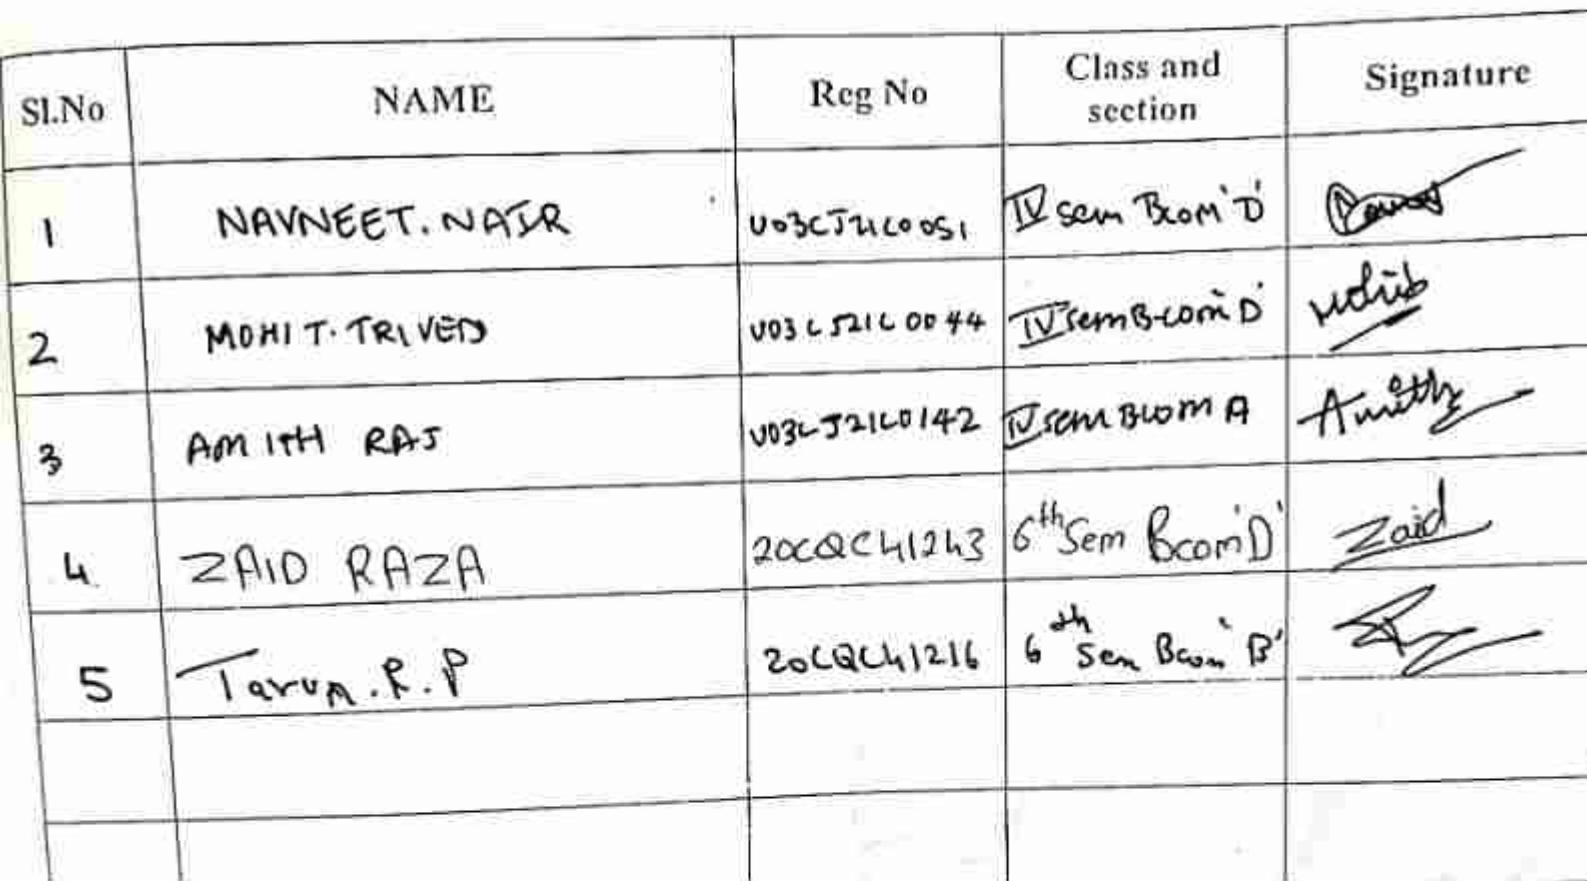 Sl.No NAME Reg No Class and section Signature
1 NAVNEET. NAIR U03CJ21C0051 IV sem Bcom 'D'
2 MOHIT. TRIVEDI U03CJ21C0044 IV sem B.com 'D' Mohit
3 AMITH RAJ U03CJ21C0142 IV sem BCOM A Amith
4 ZAID RAZA 20CQC41243 6th Sem Bcom 'D' Zaid
5 Tarun. R. P 20CQC41216 6th Sem Bcom 'B'